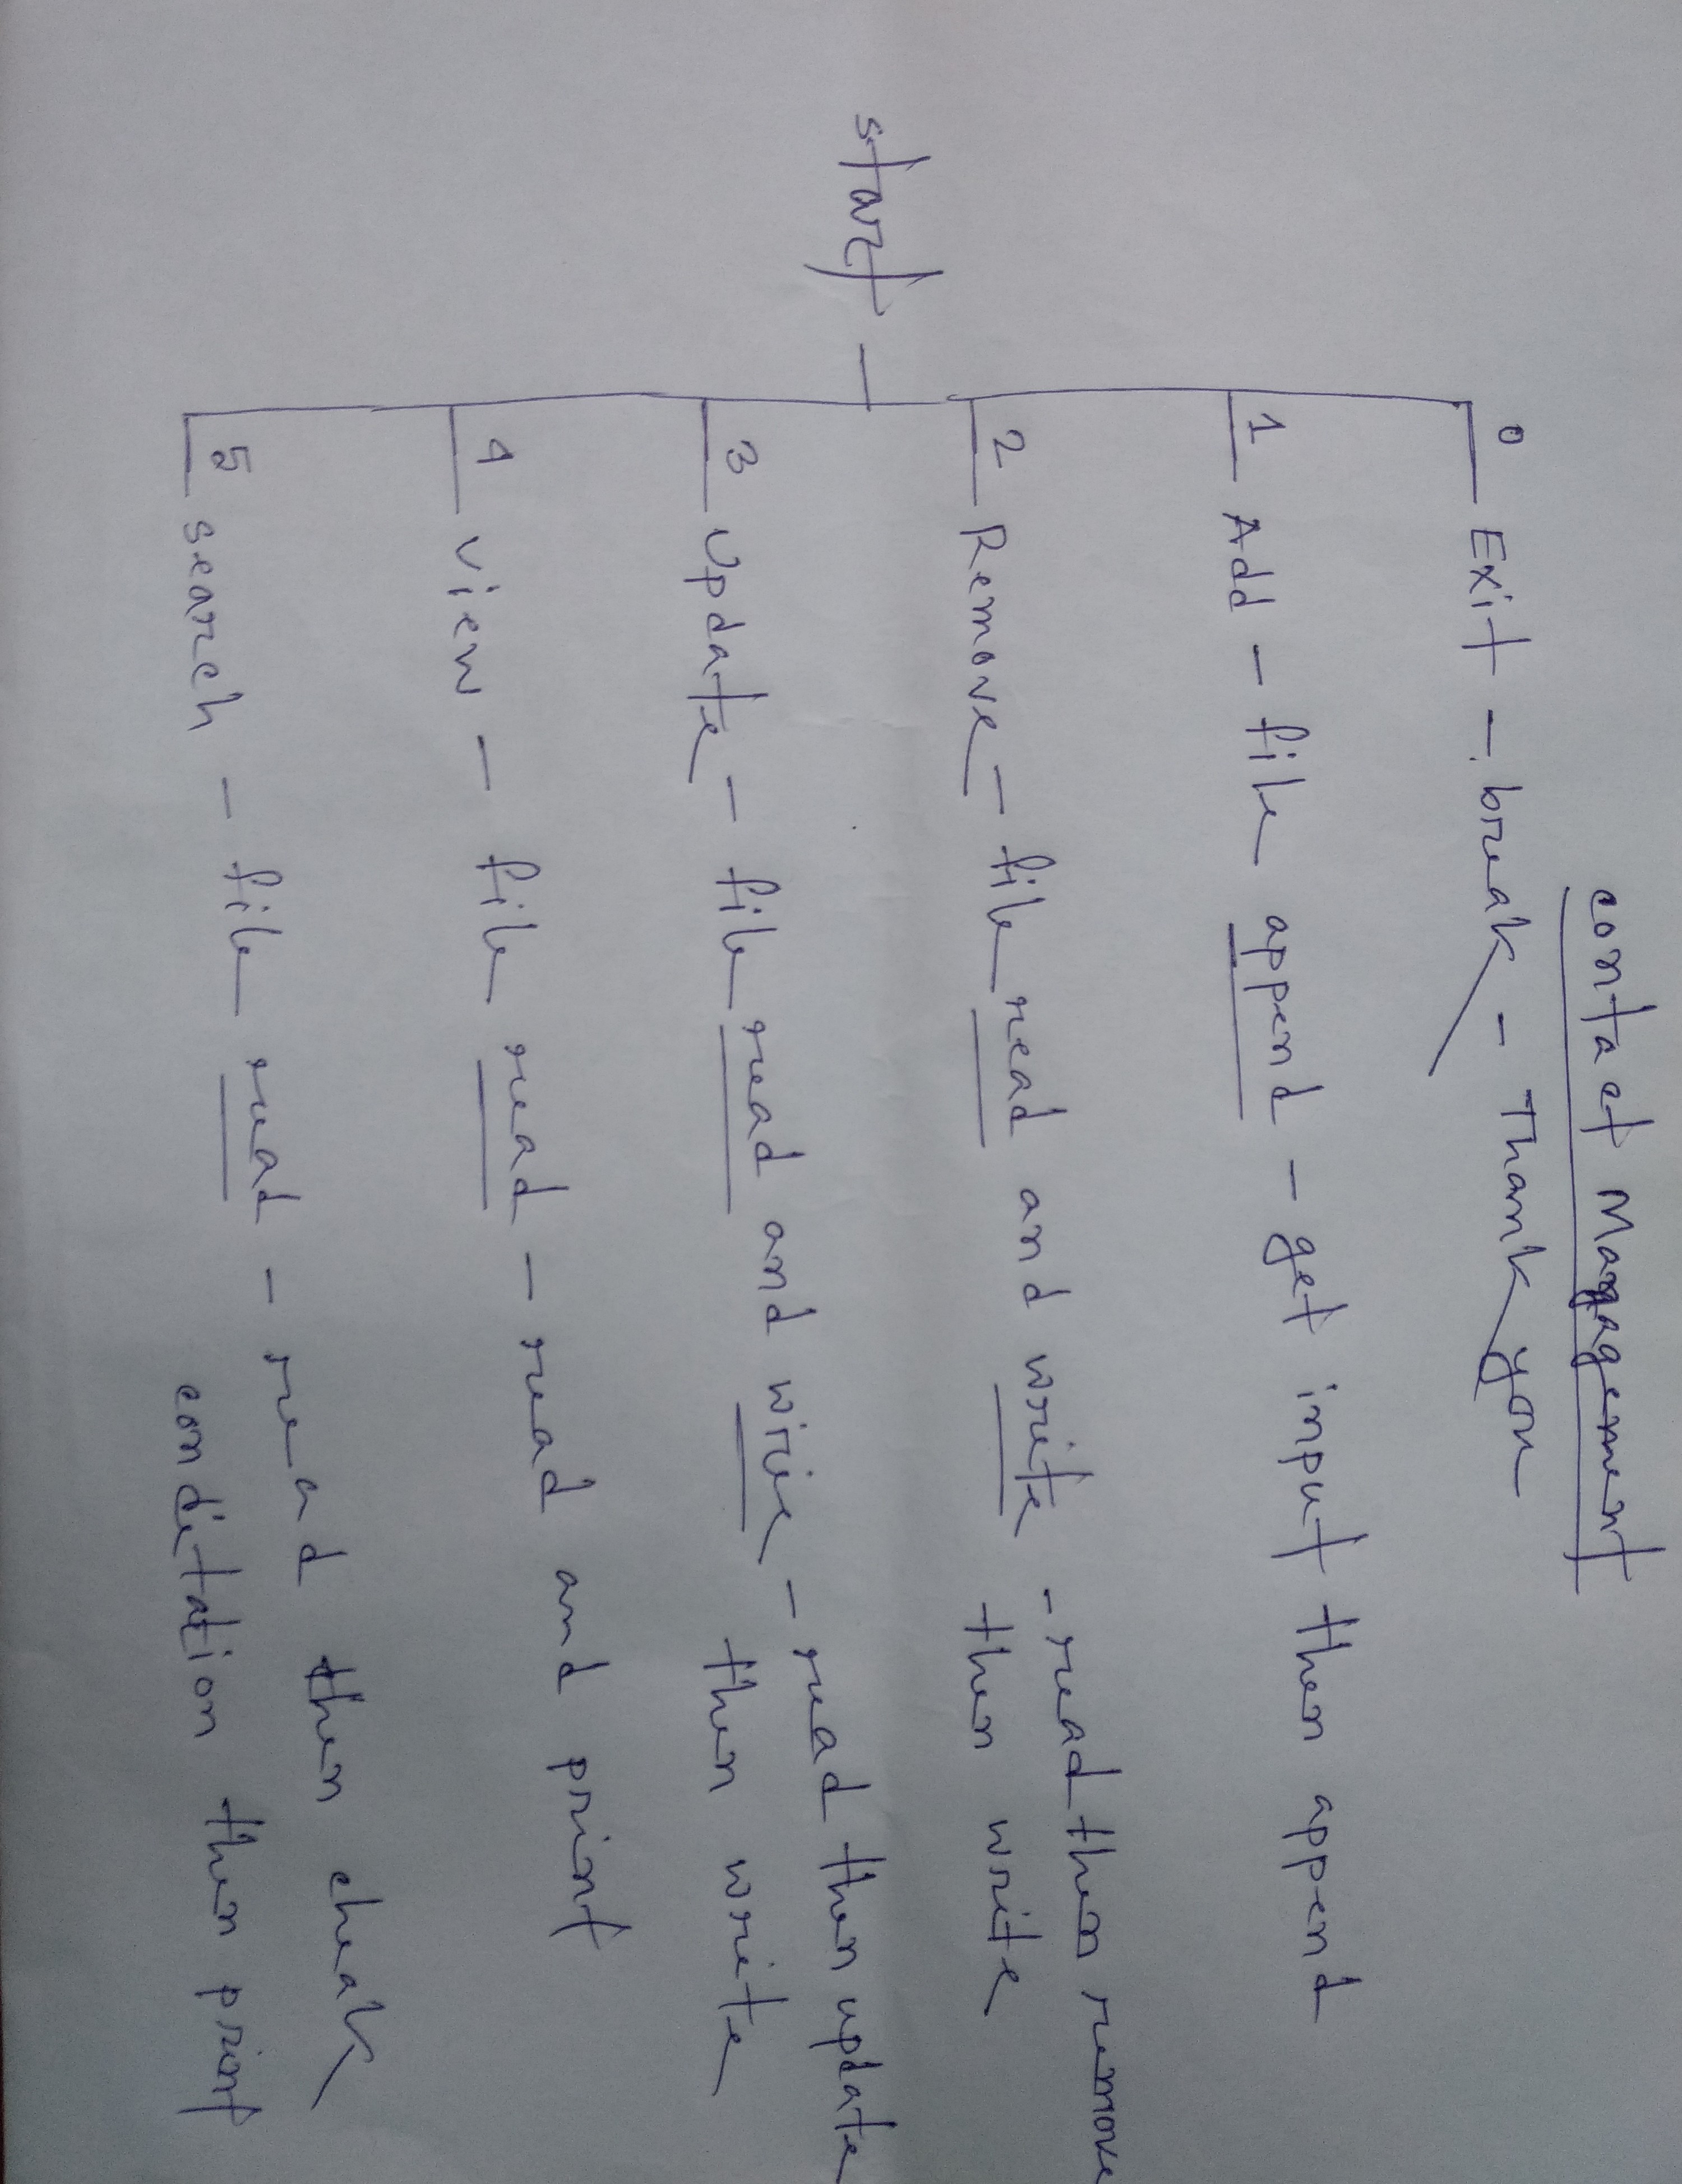 contact Management
0 Exit - break - Thank you
1 Add - file append - get input then append
2 Remove - file read and write - read then remove
then write
start -
3 Update - file read and wirie - read then update
then write
4 view - file read - read and print
5 search - file read - read then cheak
condetation then print